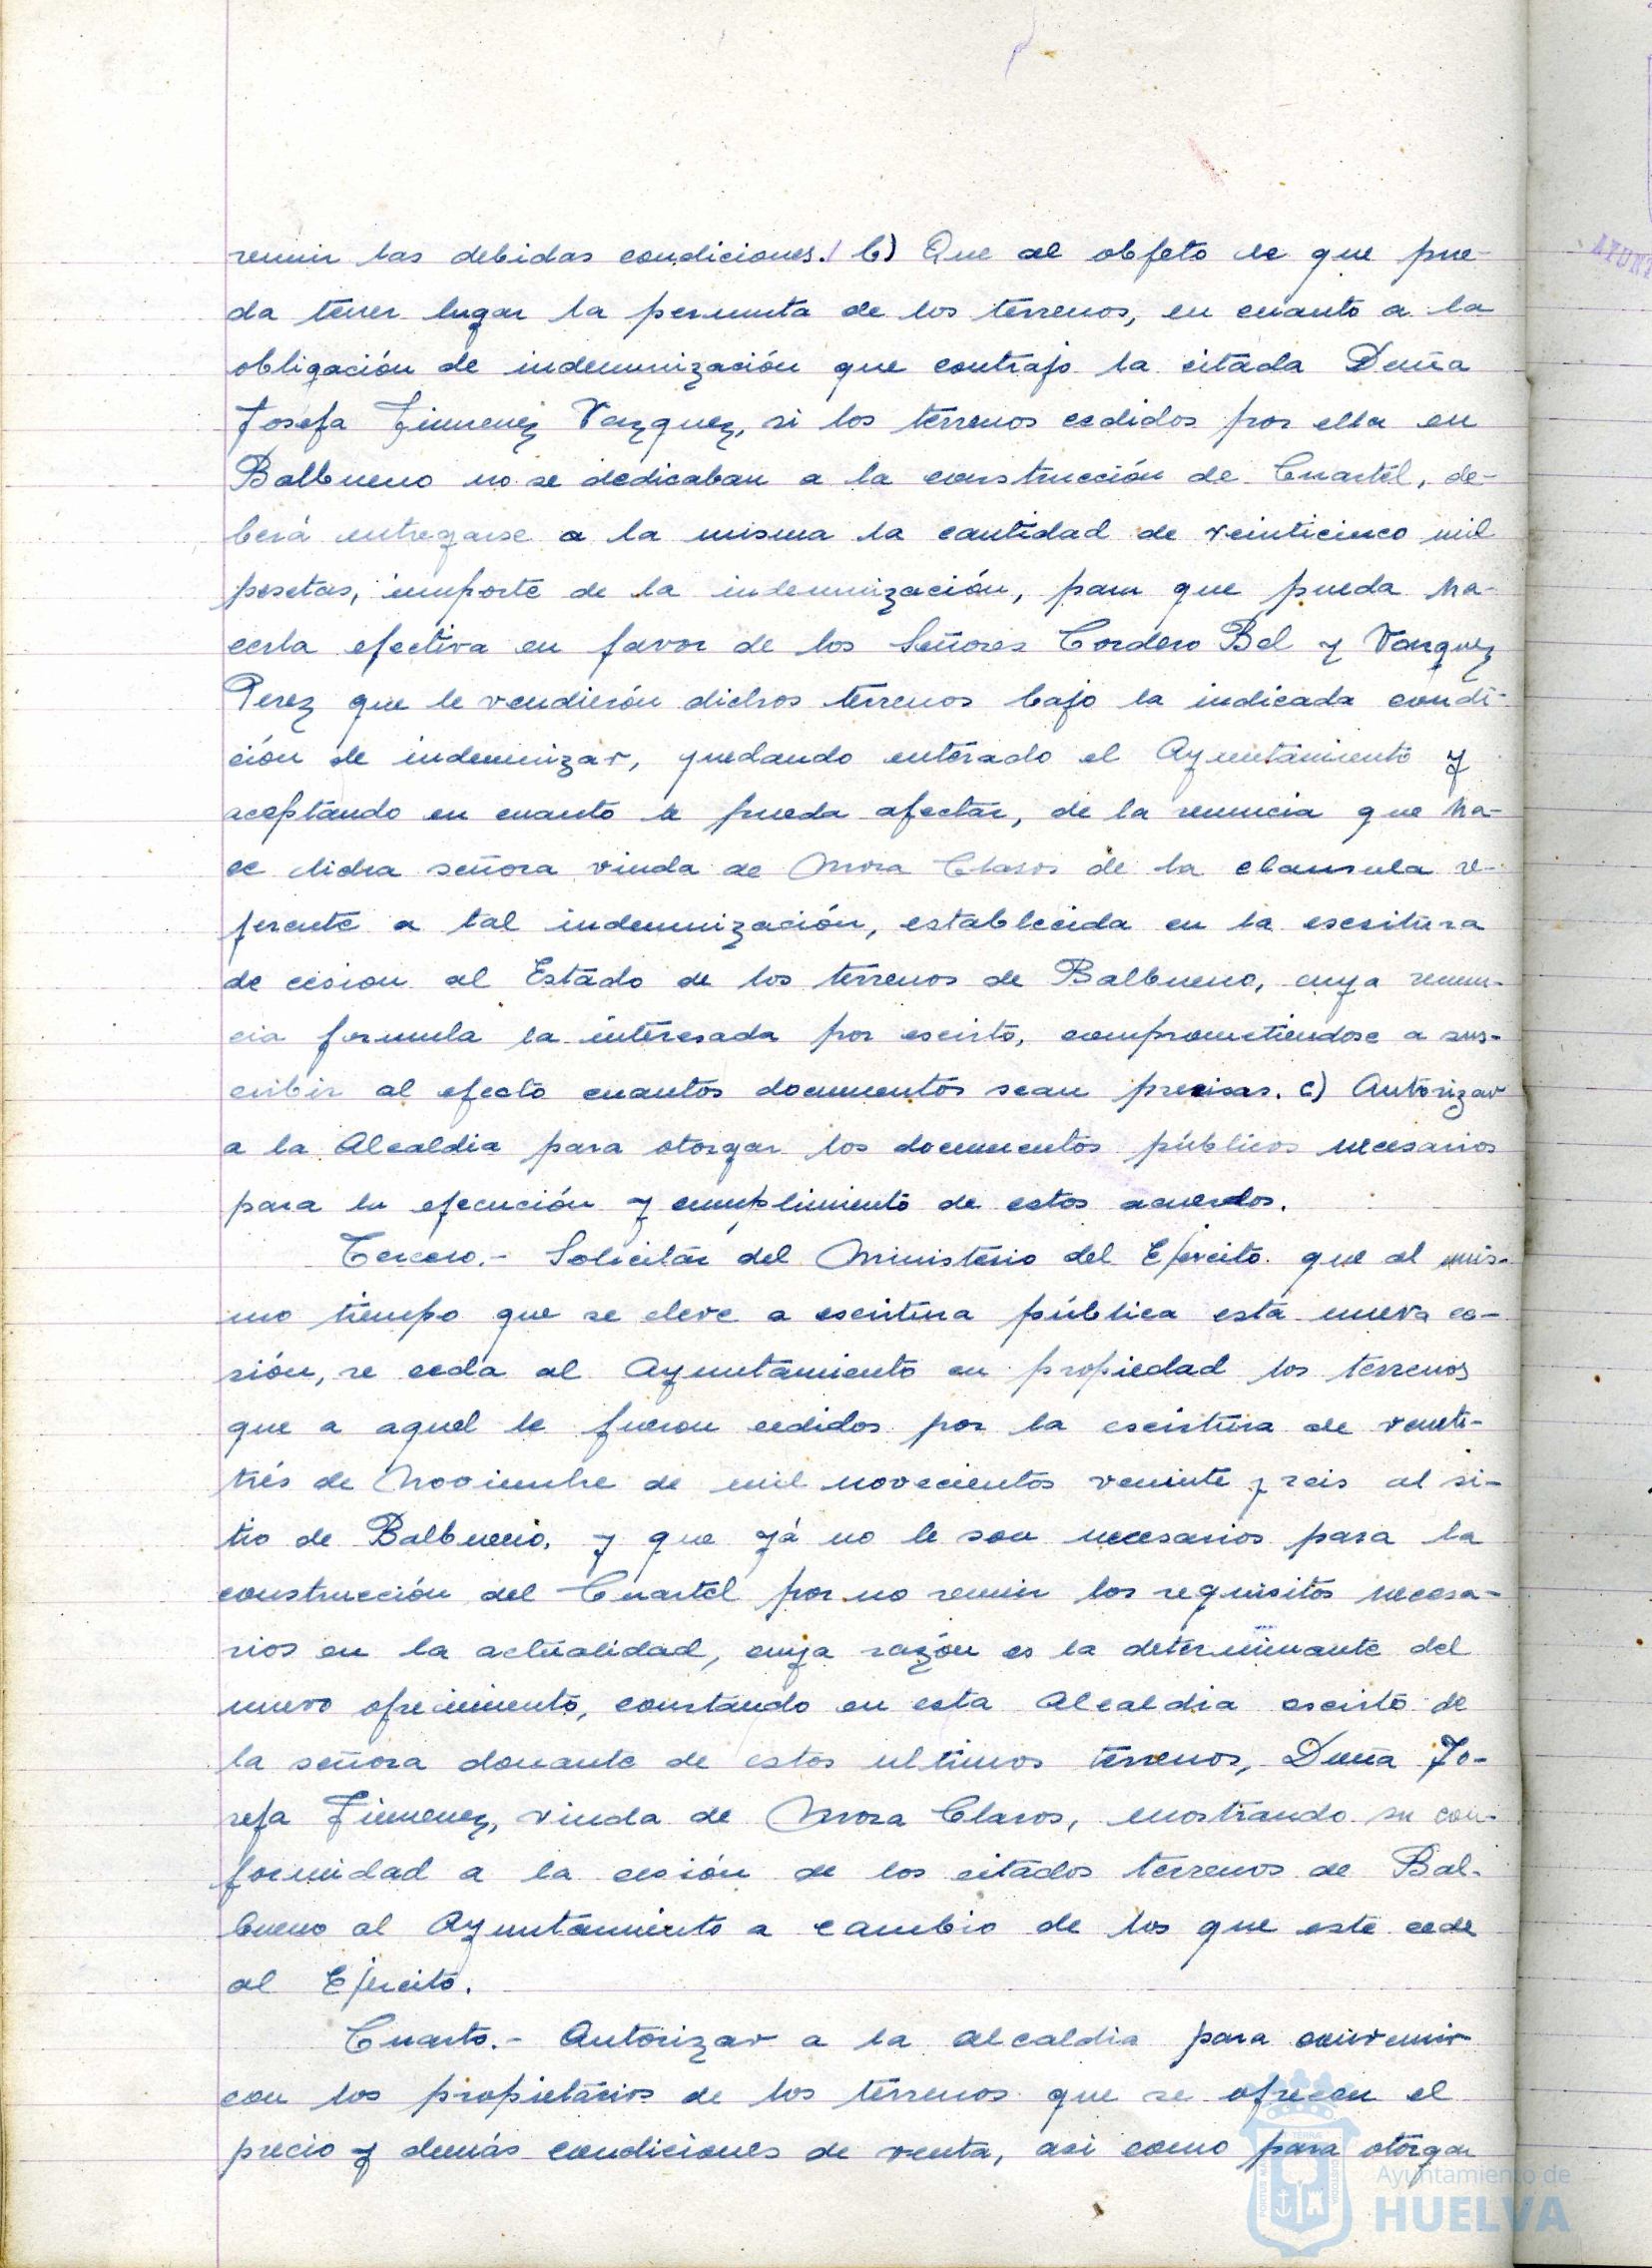 reunir las debidas condiciones. b) Que al objeto de que pue-
da tener lugar la permuta de los terrenos, en cuanto a la
obligación de indemnización que contrajo la citada Doña
Josefa Jimenez Vazquez, si los terrenos cedidos por ella en
Balbueno no se dedicaban a la construcción de Cuartel, de-
berá entregarse a la misma la cantidad de veinticinco mil
pesetas, importe de la indemnización, para que pueda ha-
cerla efectiva en favor de los Señores Cordero Bel y Vazquez
Perez que le vendierón dichos terrenos bajo la indicada condi-
ción de indemnizar, quedando enterado el Ayuntamiento y
aceptando en cuanto le pueda afectar, de la renuncia que ha-
ce dicha señora viuda de Mora Claros de la clausula re-
ferente a tal indemnización, establecida en la escritura
de cesion al Estado de los terrenos de Balbueno, cuya renun-
cia formula la interesada por escrito, comprometiendose a sus-
cribir al efecto cuantos documentos sean precisos. c) Autorizar
a la Alcaldia para otorgar los documentos públicos necesarios
para la ejecución y cumplimiento de estos acuerdos.
Tercero.- Solicitar del Ministerio del Ejercito que al mis-
mo tiempo que se eleve a escritura pública esta nueva ce-
sión, se ceda al Ayuntamiento en propiedad los terrenos
que a aquel le fueron cedidos por la escritura de veinti-
trés de Noviembre de mil novecientos veinte y seis al si-
tio de Balbueno, y que yá no le son necesarios para la
construcción del Cuartel por no reunir los requisitos necesa-
rios en la actualidad, cuya razón es la determinante del
nuevo ofrecimiento, constando en esta Alcaldia escrito de
la señora donante de estos ultimos terrenos, Doña Jo-
sefa Jimenez, viuda de Mora Claros, mostrando su con-
formidad a la cesión de los citados terrenos de Bal-
bueno al Ayuntamiento a cambio de los que este cede
al Ejercito.
Cuarto.- Autorizar a la alcaldia para convenir
con los propietarios de los terrenos que se ofrecen el
precio y demás condiciones de venta, asi como para otorgar
Ayuntamiento de
HUELVA